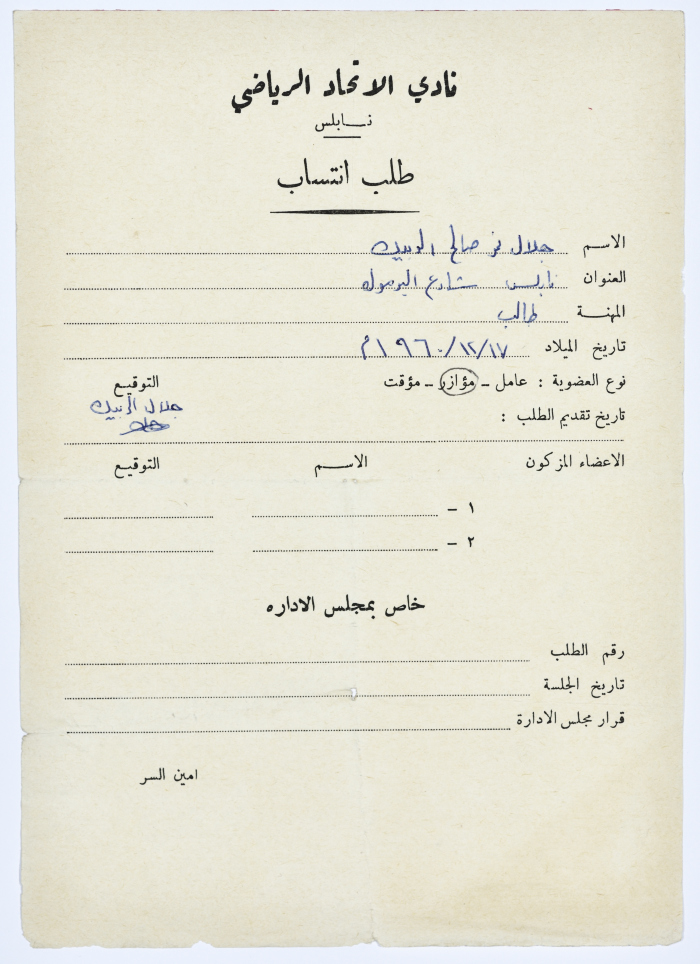 نادي الاتحاد الرياضي
نابلس
طلب انتساب
الاسم جلال نمر صالح
العنوان نابلس شارع اليرموك
المهنة طالب
تاريخ الميلاد ١٩٦٠/١٢/١٧م
نوع العضوية : عامل - مؤازر - مؤقت التوقيع
جلال
تاريخ تقديم الطلب :
الاعضاء المزكون الاسم التوقيع
١ -
٢ -
خاص بمجلس الاداره
رقم الطلب
تاريخ الجلسة
قرار مجلس الادارة
امين السر